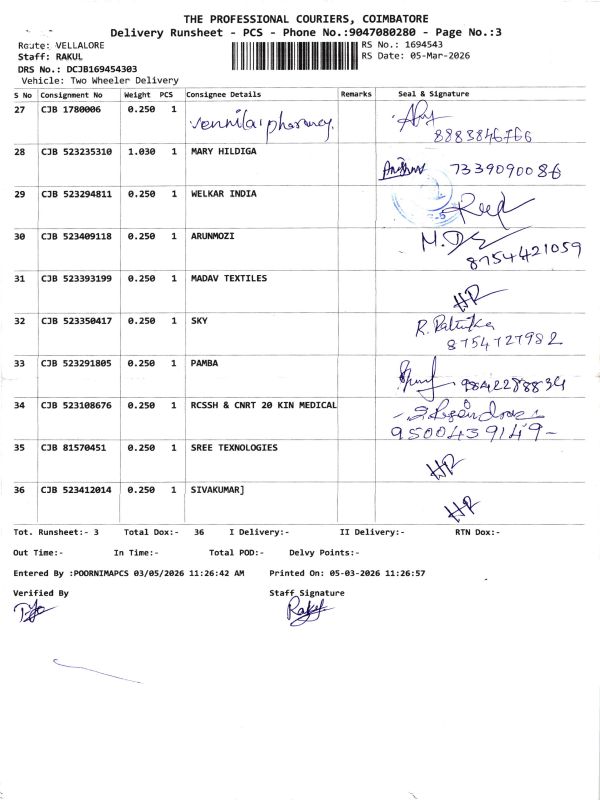 THE PROFESSIONAL COURIERS, COIMBATORE
Delivery Runsheet - PCS - Phone No.:9047080280 - Page No.:3
Route: VELLALORE
RS No.: 1694543
Staff: RAKUL
RS Date: 05-Mar-2026
DRS No.: DCJB169454303
Vehicle: Two Wheeler Delivery
S No Consignment No Weight PCS Consignee Details Remarks Seal & Signature
27 CJB 1780006 0.250 1 Vennilai pharmacy.
8883846766
28 CJB 523235310 1.030 1 MARY HILDIGA 7339090086
29 CJB 523294811 0.250 1 WELKAR INDIA
30 CJB 523409118 0.250 1 ARUNMOZI
8754421059
31 CJB 523393199 0.250 1 MADAV TEXTILES
HR
32 CJB 523350417 0.250 1 SKY
8754727982
33 CJB 523291805 0.250 1 PAMBA
9842288834
34 CJB 523108676 0.250 1 RCSSH & CNRT 20 KIN MEDICAL
9500439149-
35 CJB 81570451 0.250 1 SREE TEXNOLOGIES
HR
36 CJB 523412014 0.250 1 SIVAKUMAR]
HR
Tot. Runsheet:- 3 Total Dox:- 36 I Delivery:- II Delivery:- RTN Dox:-
Out Time:- In Time:- Total POD:- Delvy Points:-
Entered By :POORNIMAPCS 03/05/2026 11:26:42 AM Printed On: 05-03-2026 11:26:57
Verified By Staff Signature
Rakul